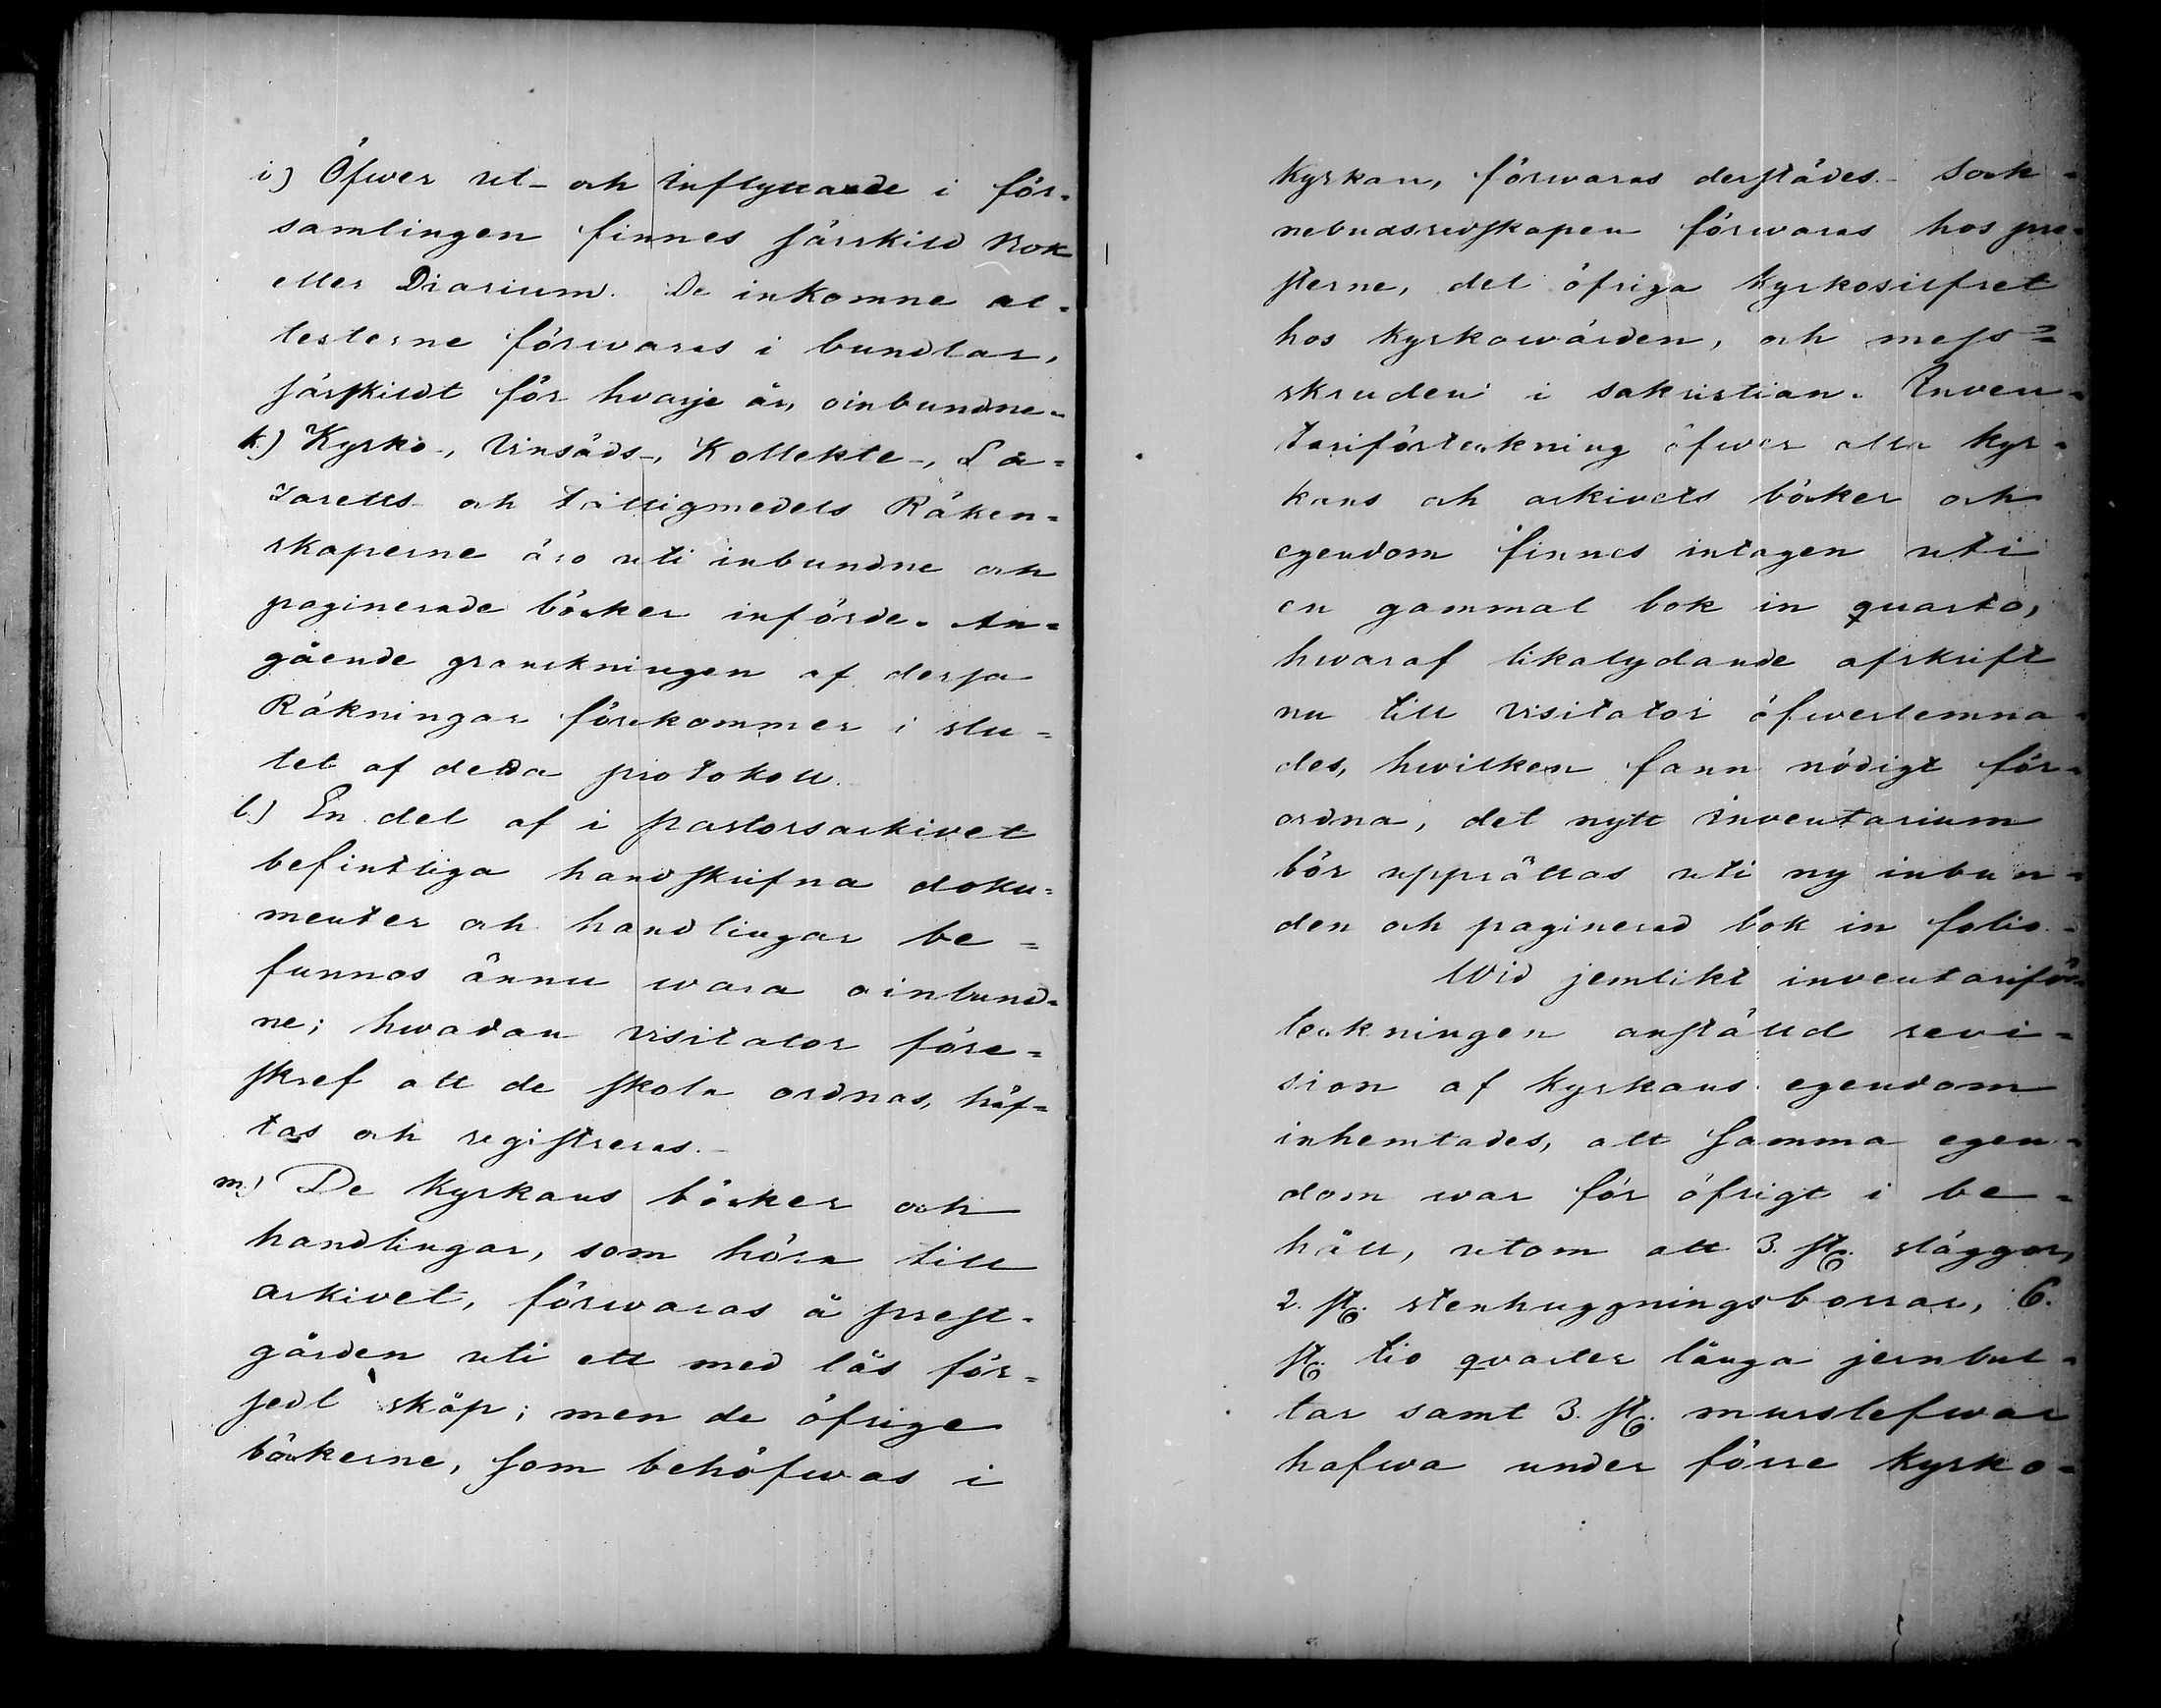 i) Öfwer ut- och inflyttande i för=
samlingen finnes särskild Bok
eller Diarium. De inkomne at=
testerne förwaras i bundtar,
särskildt för hvarje år, oinbundne.
k.) Kyrko-, Vinsäds-, Kollekte-, La=
zaretts- och Fattigmedels Räken=
skaperne äro uti inbundne och
paginerade böcker införde. An=
gående granskningen af dessa
Räkningar förekommer i slu=
tet af detta protokoll.
l.) En del af i pastorsarkivet
befintliga handskrifna doku=
menter och handlingar be=
funnos ännu wara oinbund=
ne; hwadan visitator före=
skref att de skola ordnas, häf=
tas och registreras.
m.) De Kyrkans böcker och
handlingar, som höra till
arkivet, förwaras å prest=
gården uti ett med lås för=
sedt skåp; men de öfrige
böckerne, som behöfwas i
Kyrkan, förwaras derstädes. Sock=
nebudsredskapen förwaras hos pre=
sterne, det öfriga Kyrkosilfret
hos Kyrkowärden, och mess=
skruden i sakristian. Inven=
tariiförteckning öfwer alla Kyr=
kans och arkivets böcker och
egendom finnes intagen uti
en gammal bok in quarto,
hwaraf likalydande afskrift
nu till visitator öfwerlemna=
des, hwilken fann nödigt för=
ordna, det nytt Inventarium
bör upprättas uti ny inbun=
den och paginerad bok in folio.
Wid jemlikt inventariiför=
teckningen anställd revi=
sion af Kyrkans egendom
inhemtades, att samma egen=
dom war för öfrigt i be=
håll, utom att 3. st. släggor,
2. st. stenhuggningsborrar, 6.
st. tio qvarter långa jernbul=
tar samt 3. st. murslefwar
hafwa under förre Kyrko=